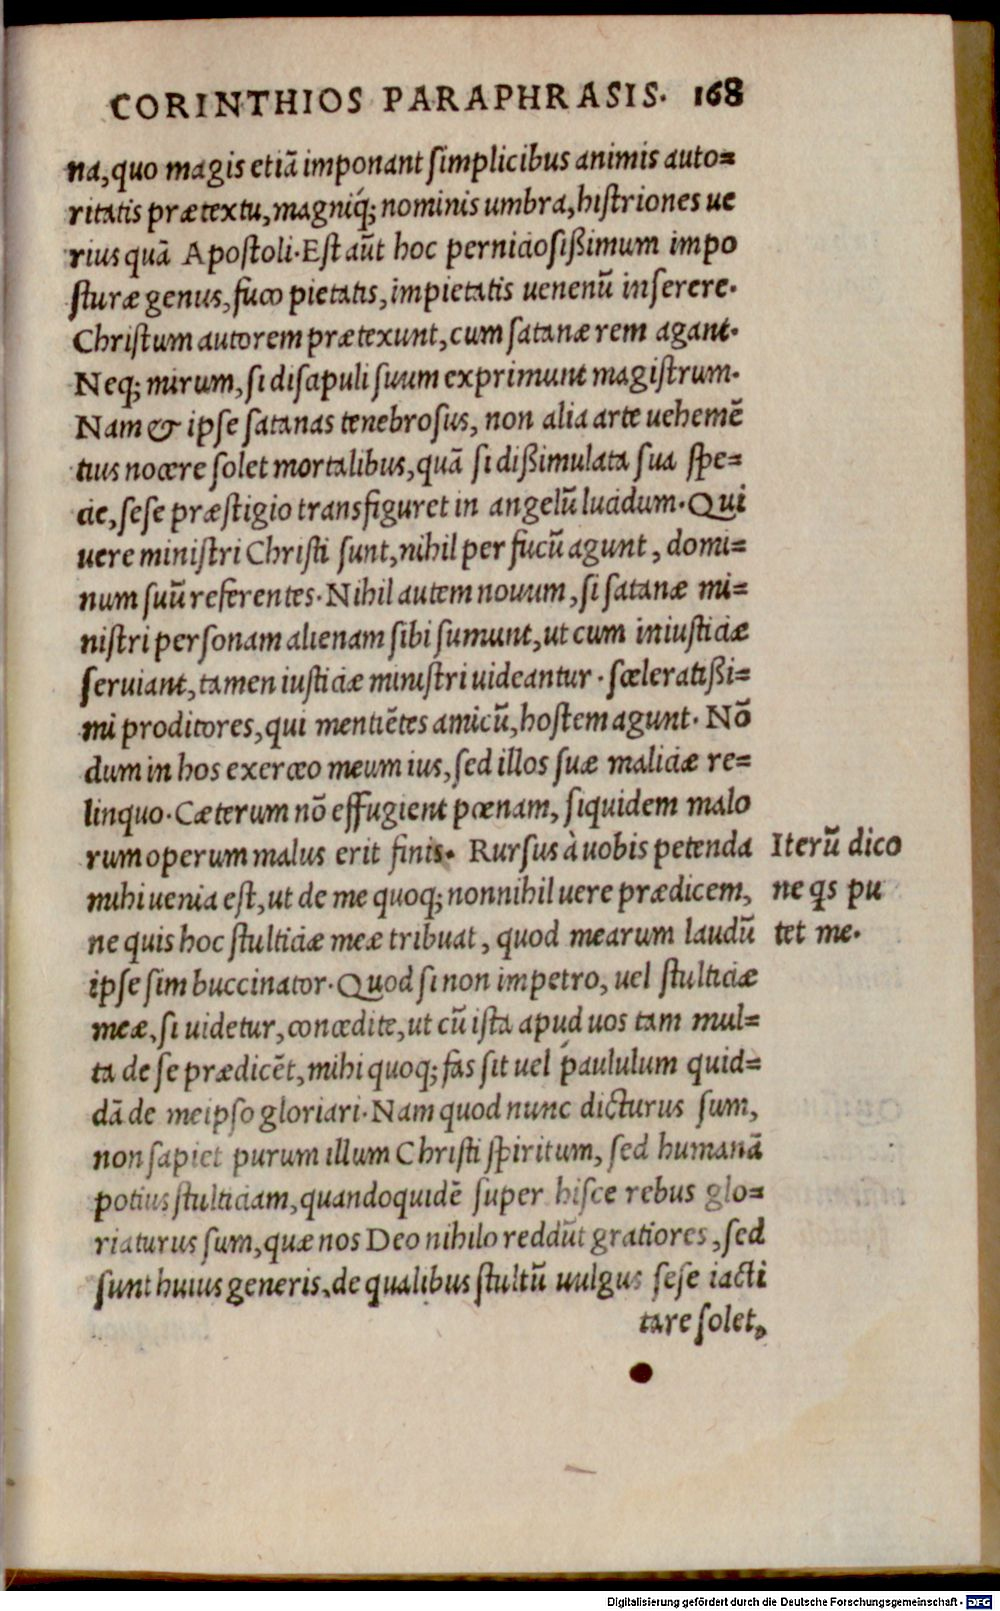 CORINTHIOS PARAPHRASIS. 168
na, quo magis etiā imponant simplicibus animis auto=
ritatis prætextu, magniq́; nominis umbra, histriones ue
rius quā Apostoli. Est aūt hoc perniciosißimum impo
sturæ genus, fuco pietatis, impietatis uenenū inserere.
Christum autorem prætexunt, cum satanæ rem agant.
Neq; mirum, si discipuli suum exprimunt magistrum.
Nam & ipse satanas tenebrosus, non alia arte uehemē
tius nocere solet mortalibus, quā si dißimulata sua spe=
cie, sese præstigio transfiguret in angelū lucidum. Qui
uere ministri Christi sunt, nihil per fucū agunt, domi=
num suū referentes. Nihil autem nouum, si satanæ mi=
nistri personam alienam sibi sumunt, ut cum iniusticiæ
seruiant, tamen iusticiæ ministri uideantur. sceleratißi=
mi proditores, qui mentiētes amicū, hostem agunt. Nō
dum in hos exerceo meum ius, sed illos suæ maliciæ re=
linquo. Cæterum nō effugient pœnam, siquidem malo
rum operum malus erit finis. Rursus à uobis petenda
mihi uenia est, ut de me quoq; nonnihil uere prædicem,
ne quis hoc stulticiæ meæ tribuat, quod mearum laudū
ipse sim buccinator. Quod si non impetro, uel stulticiæ
meæ, si uidetur, concedite, ut cū ista apud uos tam mul=
ta de se prædicēt, mihi quoq; fas sit uel paululum quid=
dā de meipso gloriari. Nam quod nunc dicturus sum,
non sapiet purum illum Christi spiritum, sed humanā
potius stulticiam, quandoquidē super hisce rebus glo=
riaturus sum, quæ nos Deo nihilo reddūt gratiores, sed
sunt huius generis, de qualibus stultū uulgus sese iacti
tare solet,
Iterū dico
ne qs pu
tet me.
Digitalisierung gefördert durch die Deutsche Forschungsgemeinschaft - DFG